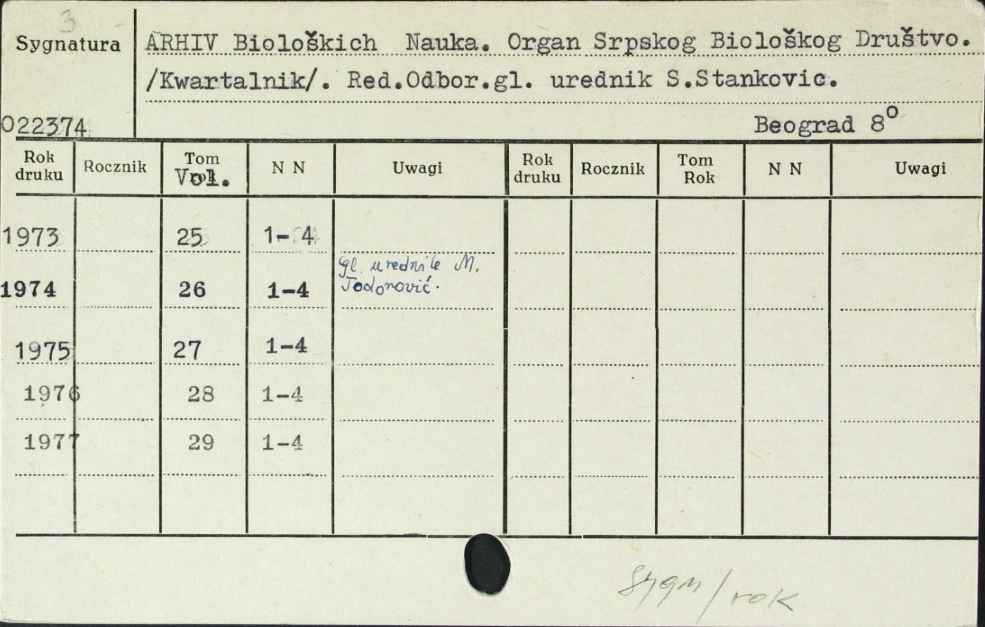 3
Sygnatura
ARHIV Biološkich Nauka. Organ Srpskog Biološkog Društvo.
/Kwartalnik/. Red.Odbor.gl. urednik S.Stankovic.
022374
Beograd 8º
Rok druku Rocznik Tom Vol. N N Uwagi Rok druku Rocznik Tom Rok N N Uwagi
1973 25 1-4
1974 26 1-4 gl. urednik M. Todorović.
1975 27 1-4
1976 28 1-4
1977 29 1-4
sygn/rok